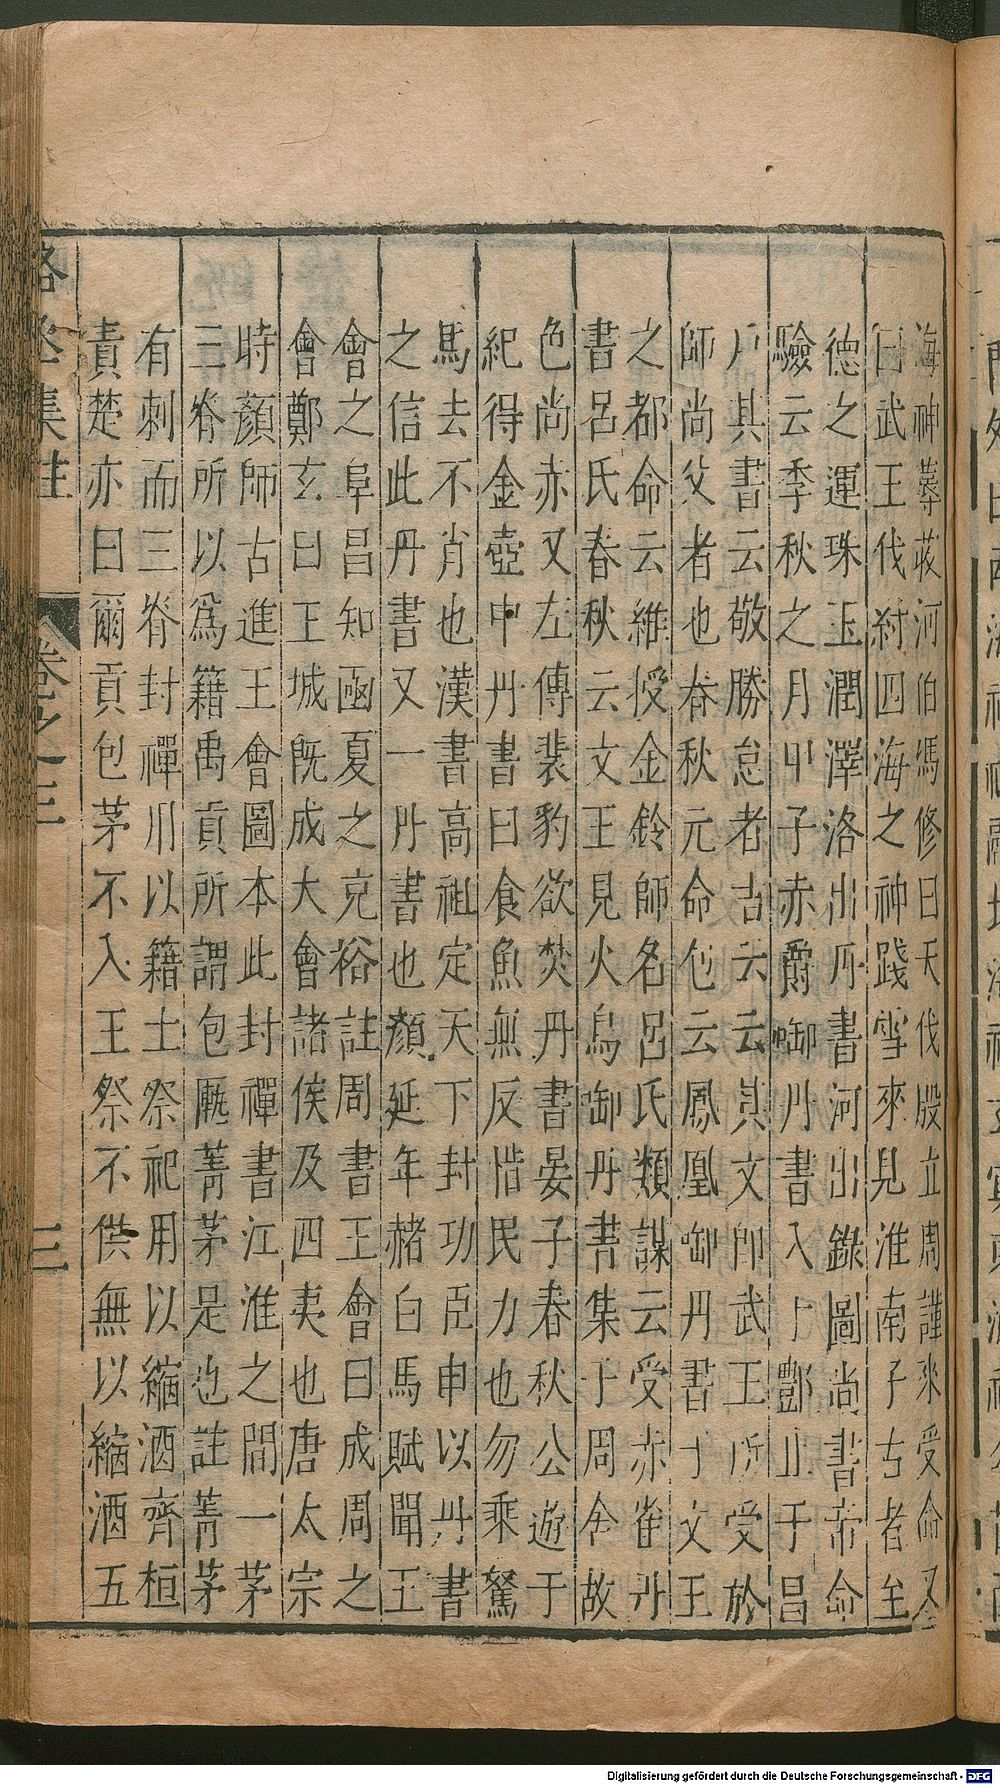 海神蓐收河伯馮修曰天伐殷立周謹來受命又
曰武王伐紂四海之神踐雪來見淮南子古者至
德之運珠玉潤澤洛出丹書河出錄圖尚書帝命
驗云季秋之月甲子赤爵啣丹書入于酆止于昌
戶其書云敬勝怠者古云云其文即武王所受於
師尚父者也春秋元命包云鳳凰啣丹書于文王
之都命云維授金鈴師名呂氏類謀云受赤雀丹
書呂氏春秋云文王見火烏啣丹書集于周舍故
色尚赤又左傳裴豹欲焚丹書晏子春秋公遊于
紀得金壺中丹書曰食魚無反惜民力也勿乘駑
馬去不肖也漢書高祖定天下封功臣申以丹書
之信此丹書又一丹書也顏延年赭白馬賦聞王
會之阜昌知函夏之充裕註周書王會曰成周之
會鄭玄曰王城既成大會諸侯及四夷也唐太宗
時顏師古進王會圖本此封禪書江淮之間一茅
三脊所以爲籍禹貢所謂包匭菁茅是也註菁茅
有刺而三脊封禪以籍土祭祀用以縮酒齊桓
責楚亦曰爾貢包茅不入王祭不供無以縮酒五
集註
卷之三
三
Digitalisierung gefördert durch die Deutsche Forschungsgemeinschaft - DFG